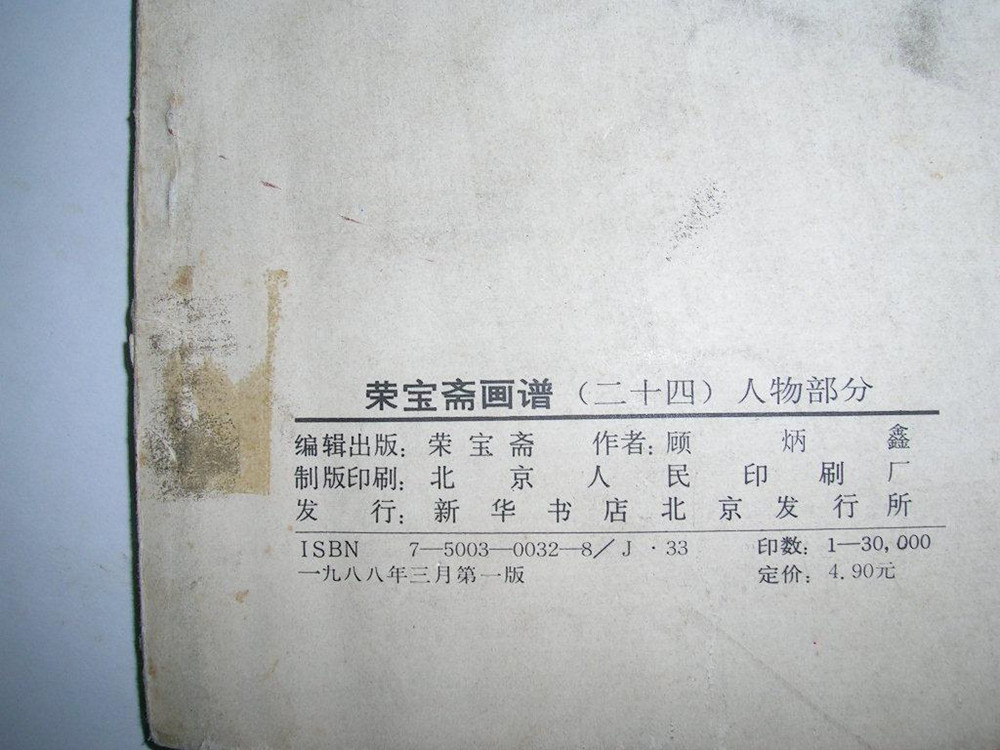 荣宝斋画谱（二十四）人物部分
编辑出版：荣宝斋 作者：顾炳鑫
制版印刷：北京人民印刷厂
发行：新华书店北京发行所
ISBN 7—5003—0032—8／J·33 印数：1—30,000
一九八八年三月第一版 定价：4.90元